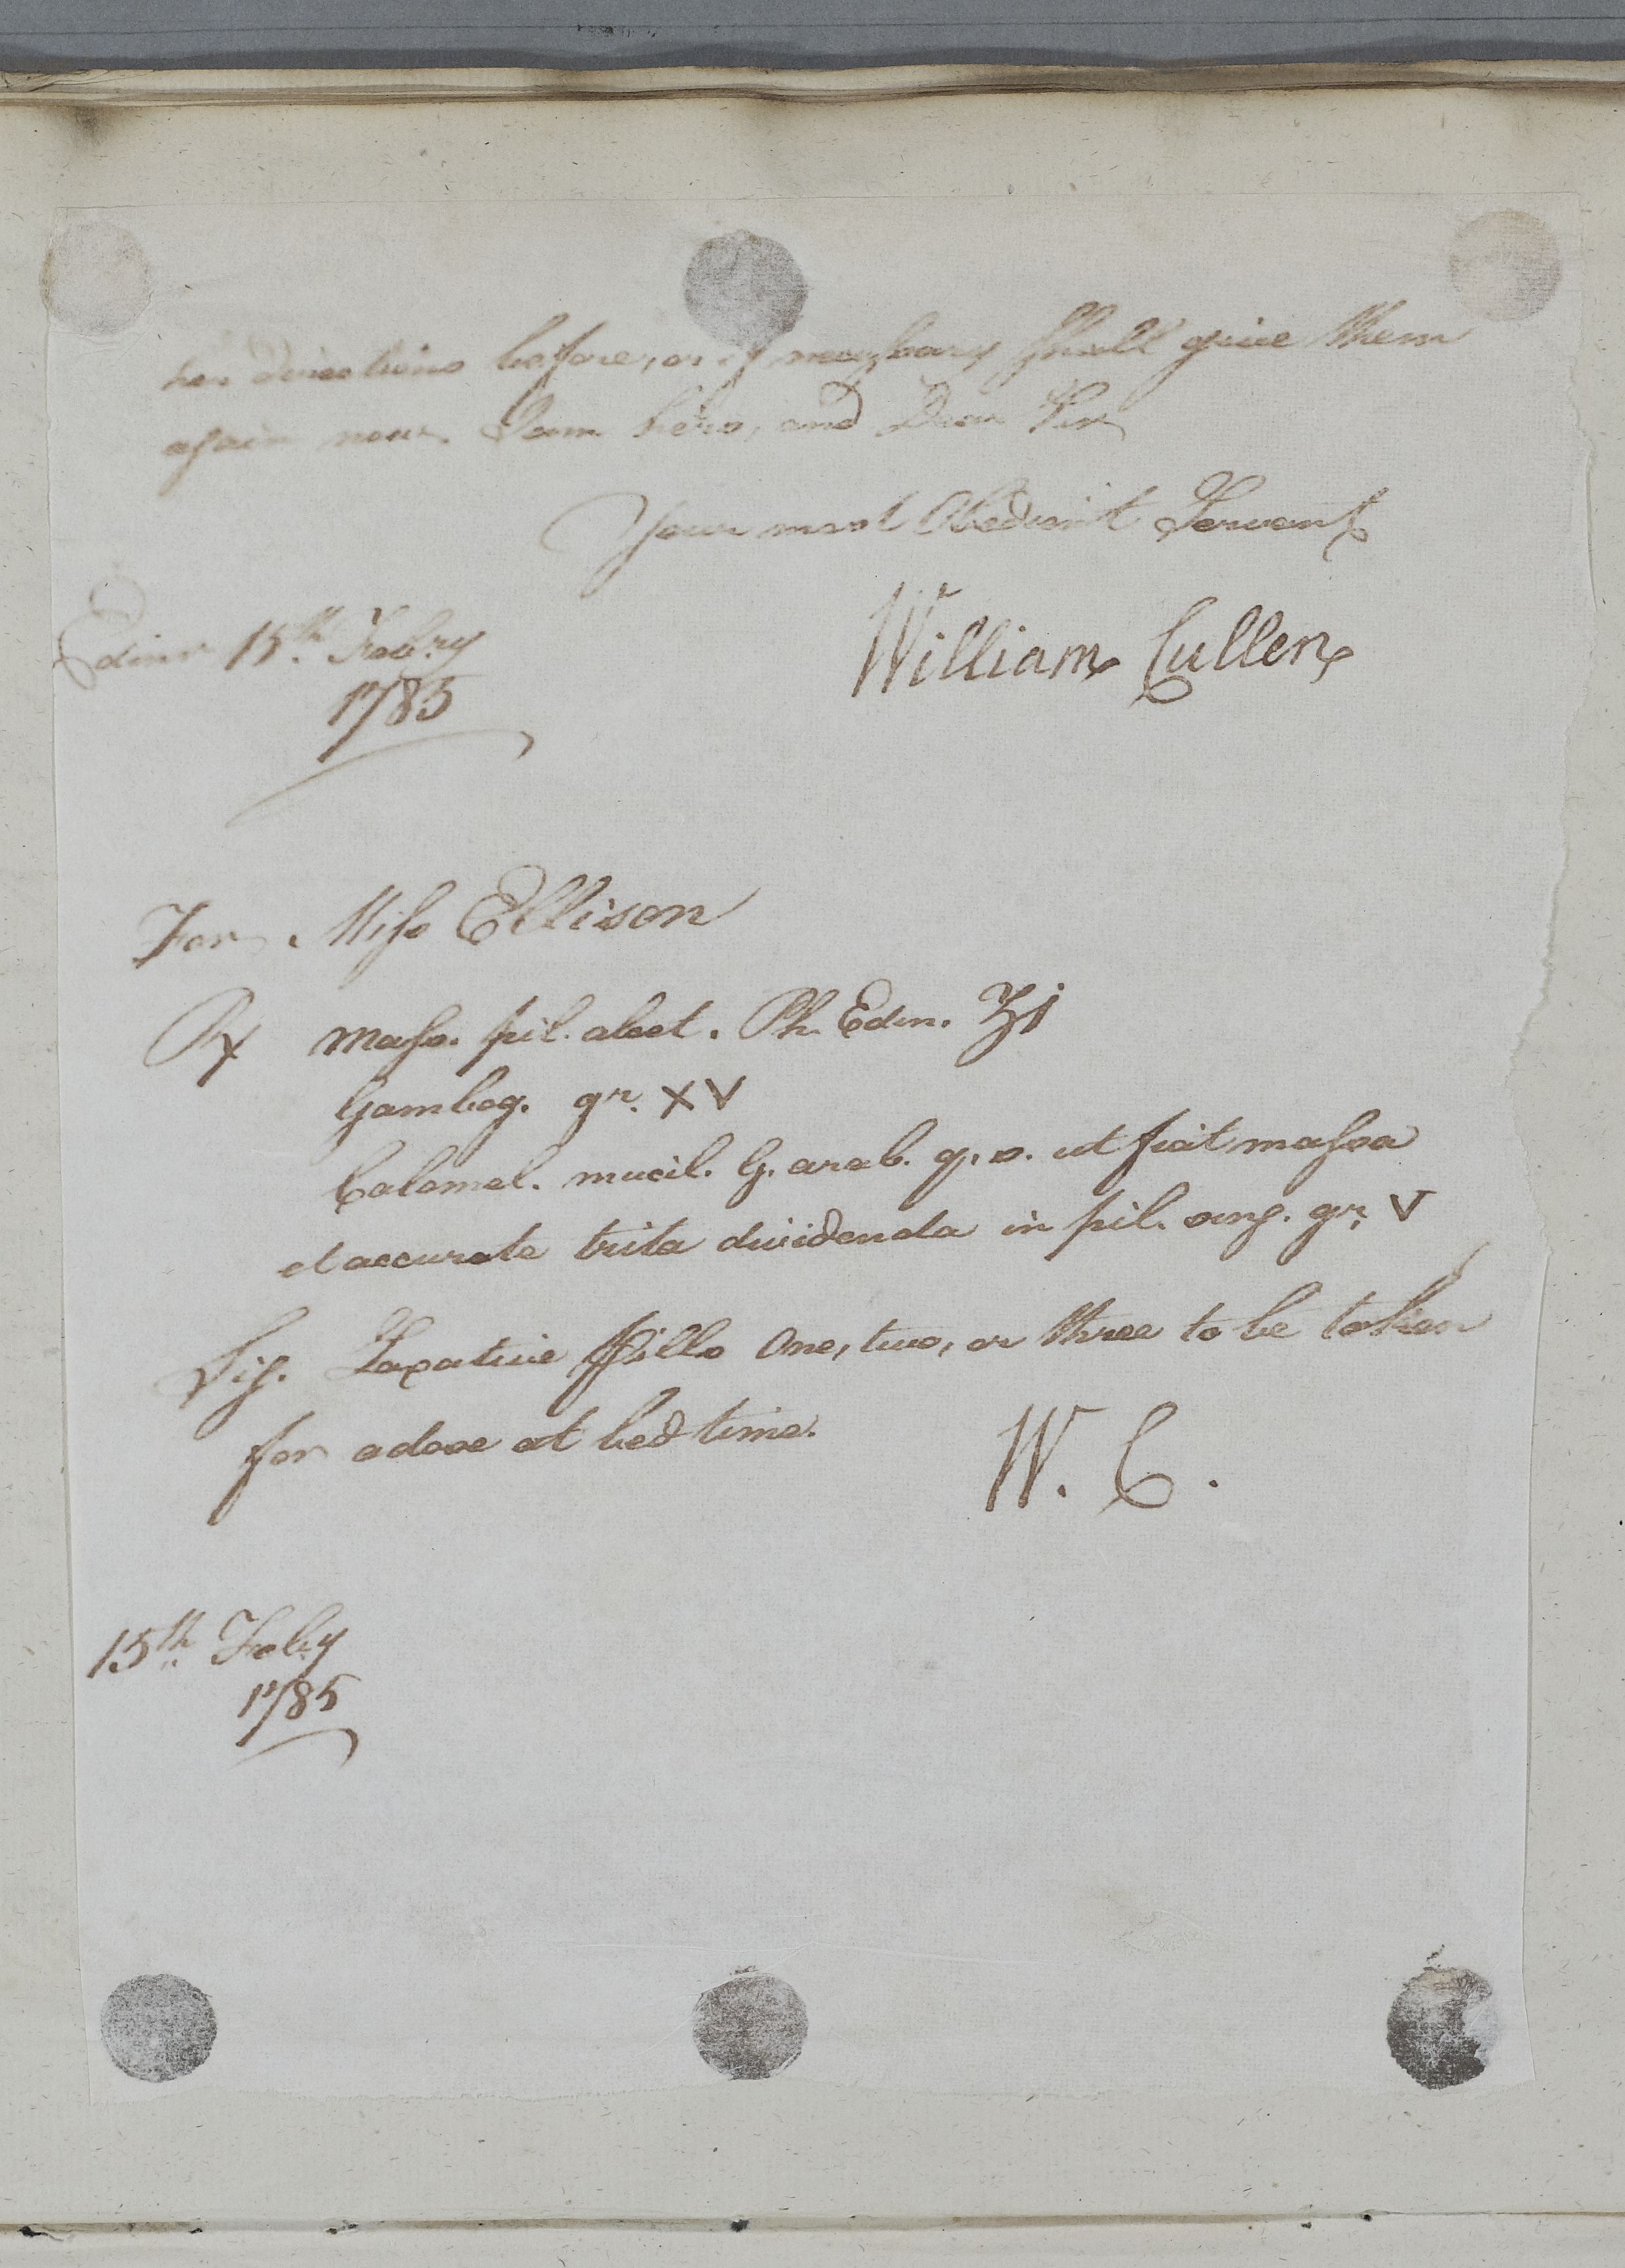 her directions before, or if necessary shall give them
again now. I am hers, and Dear Sir
Your most Obedient Servant
William Cullen
Edinr 15th. Febry
1785
For Miss Ellison
℞ Mass. pil. aloet. Ph. Edin. ʒi
Gambog. gr. XV
Calomel. mucil. G. arab. q. s. ut fiat massa
et accurate trita dividenda in pil. sing. gr. V
Sig. Laxative pills One, two, or three to be taken
for a dose at bed time.
W. C.
15th. Feby
1785